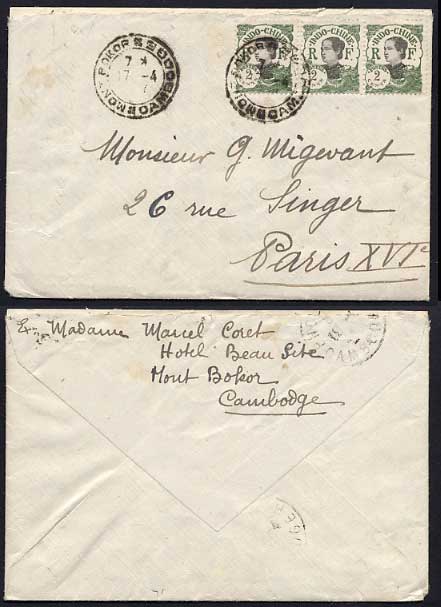 INDO-CHINE INDO-CHINE INDO-CHINE
R F R F R F
2 2 2
MONT-BOKOR CAMBODGE
7 *
17 -4
Monsieur G. Migevant
26 rue Singer
Paris XVIe
Ex. Madame Marcel Coret
Hotel Beau Site
Mont Bokor
Cambodge